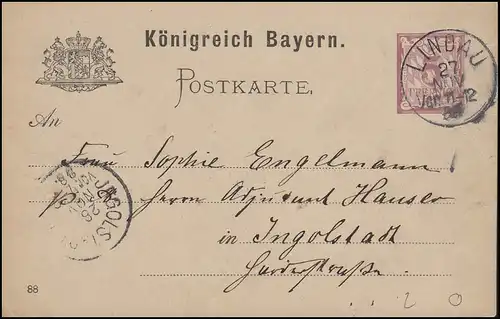 Königreich Bayern.
POSTKARTE.
LINDAU
27
NOV
VOR.11-12
An
Frau Sophie Engelmann
Herrn Adjutant Hauser
in Ingolstadt
INGOLST
28
NOV
88
2 0